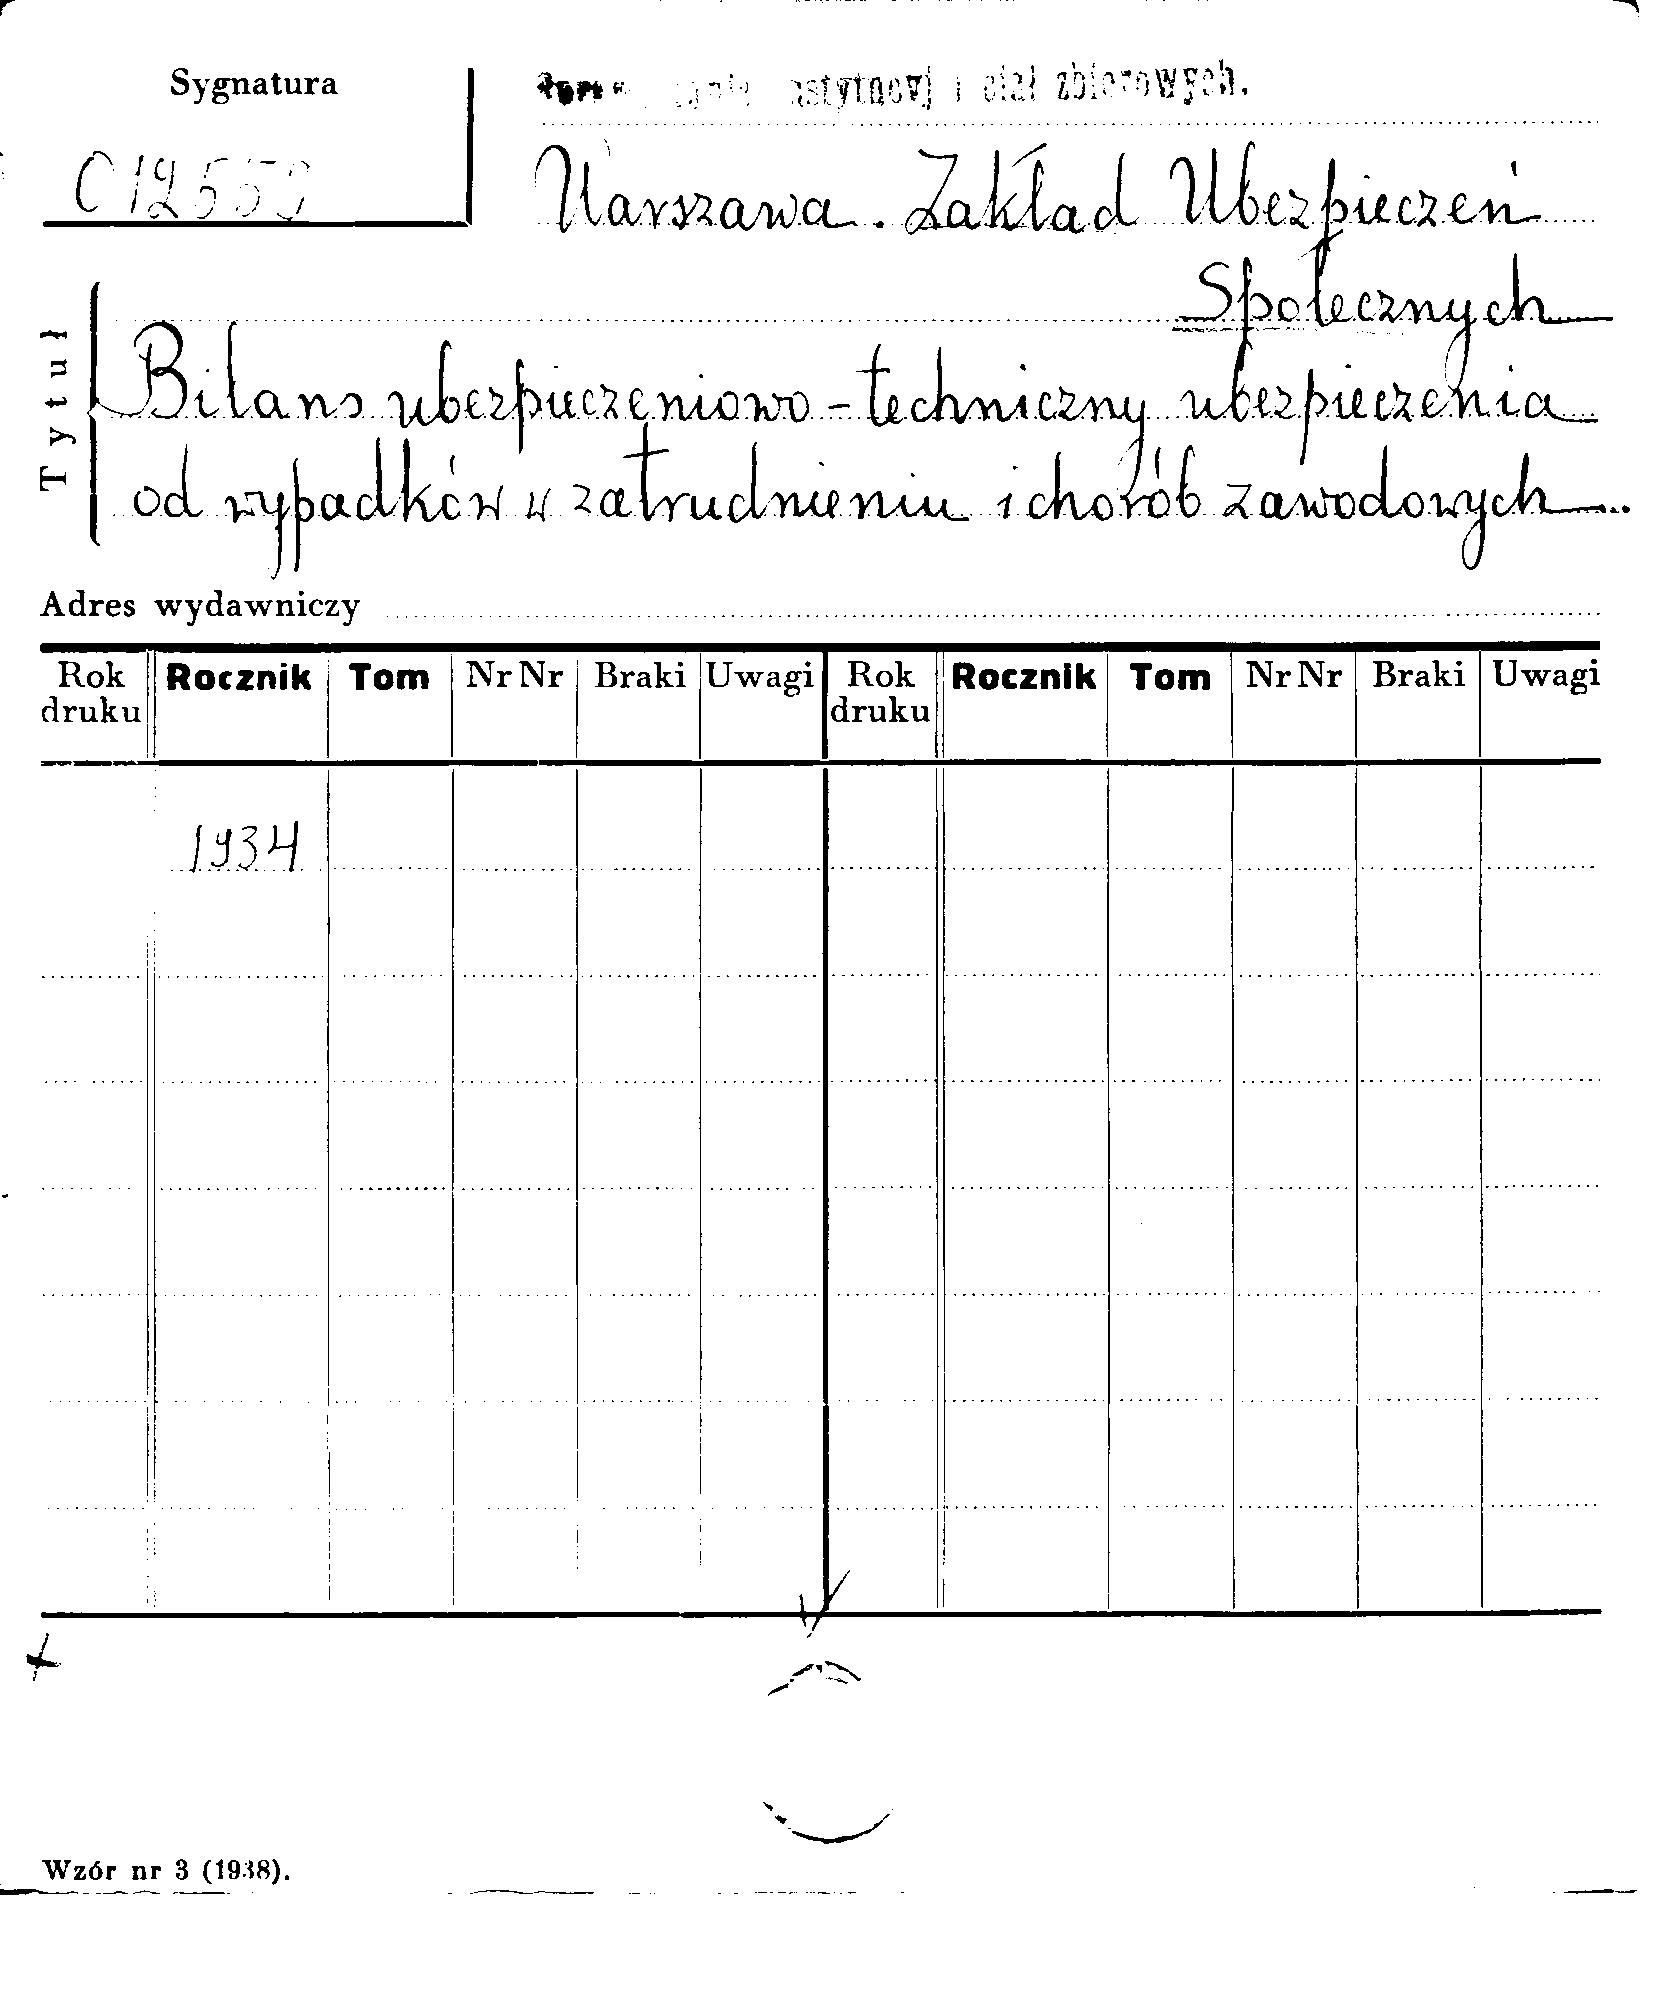 Sygnatura
instytucyj i ciał zbiorowych.
Warszawa. Zakład Ubezpieczeń
Społecznych
Tytuł
Bilans ubezpieczeniowo-techniczny ubezpieczenia
od wypadków w zatrudnieniu i chorób zawodowych
Adres wydawniczy
Rok druku Rocznik Tom Nr Nr Braki Uwagi Rok druku Rocznik Tom Nr Nr Braki Uwagi
1934
Wzór nr 3 (1938).